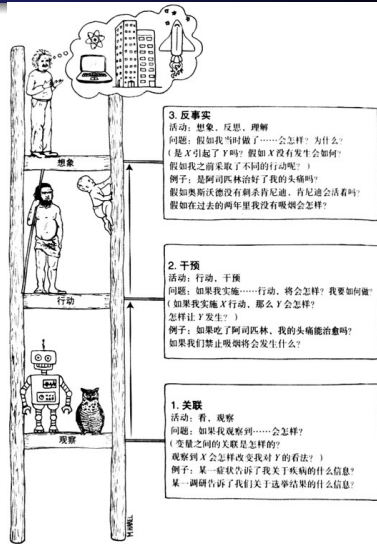 3. 反事实
活动：想象，反思，理解
问题：假如我当时做了……会怎样？为什么？
（是 X 引起了 Y 吗？假如 X 没有发生会如何？
假如我之前采取了不同的行动呢？）
例子：是阿司匹林治好了我的头痛吗？
假如奥斯沃德没有刺杀肯尼迪，肯尼迪会活着吗？
假如在过去的两年里我没有吸烟会怎样？
想象
2. 干预
活动：行动，干预
问题：如果我实施……行动，将会怎样？我要如何做？
（如果我实施 X 行动，那么 Y 会怎样？
怎样让 Y 发生？）
例子：如果吃了阿司匹林，我的头痛能治愈吗？
如果我们禁止吸烟将会发生什么？
行动
1. 关联
活动：看，观察
问题：如果我观察到……会怎样？
（变量之间的关联是怎样的？
观察到 X 会怎样改变我对 Y 的看法？）
例子：某一症状告诉了我关于疾病的什么信息？
某一调研告诉了我们关于选举结果的什么信息？
观察
M.HAREL